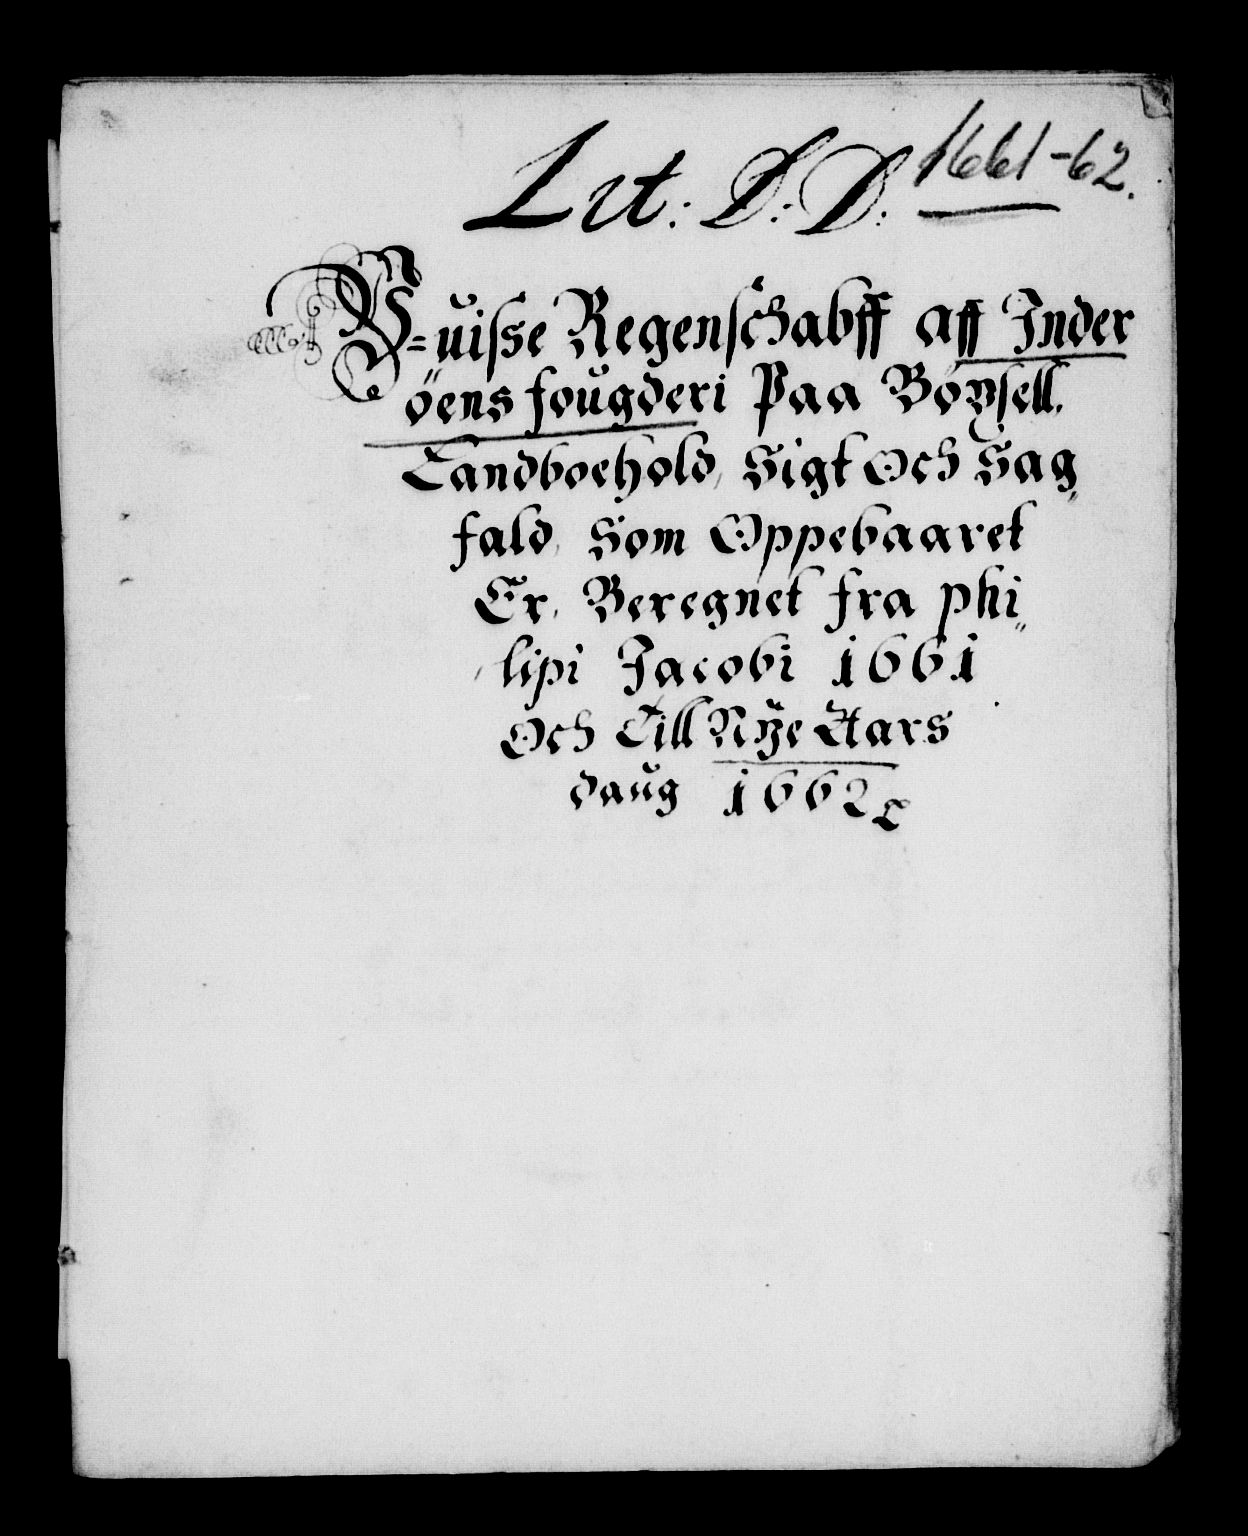 Lit: D: D: 1661-62.
V=uisse Regenschabff aff Inder
öens fougderi Paa Bøysell,
Landboehold, Sigt Och Sag„
fald, Som Oppebaaret
Er, Beregnet fra phi„
lipi Jacobi 1661
Och Till Nÿe Aars
daug 1662